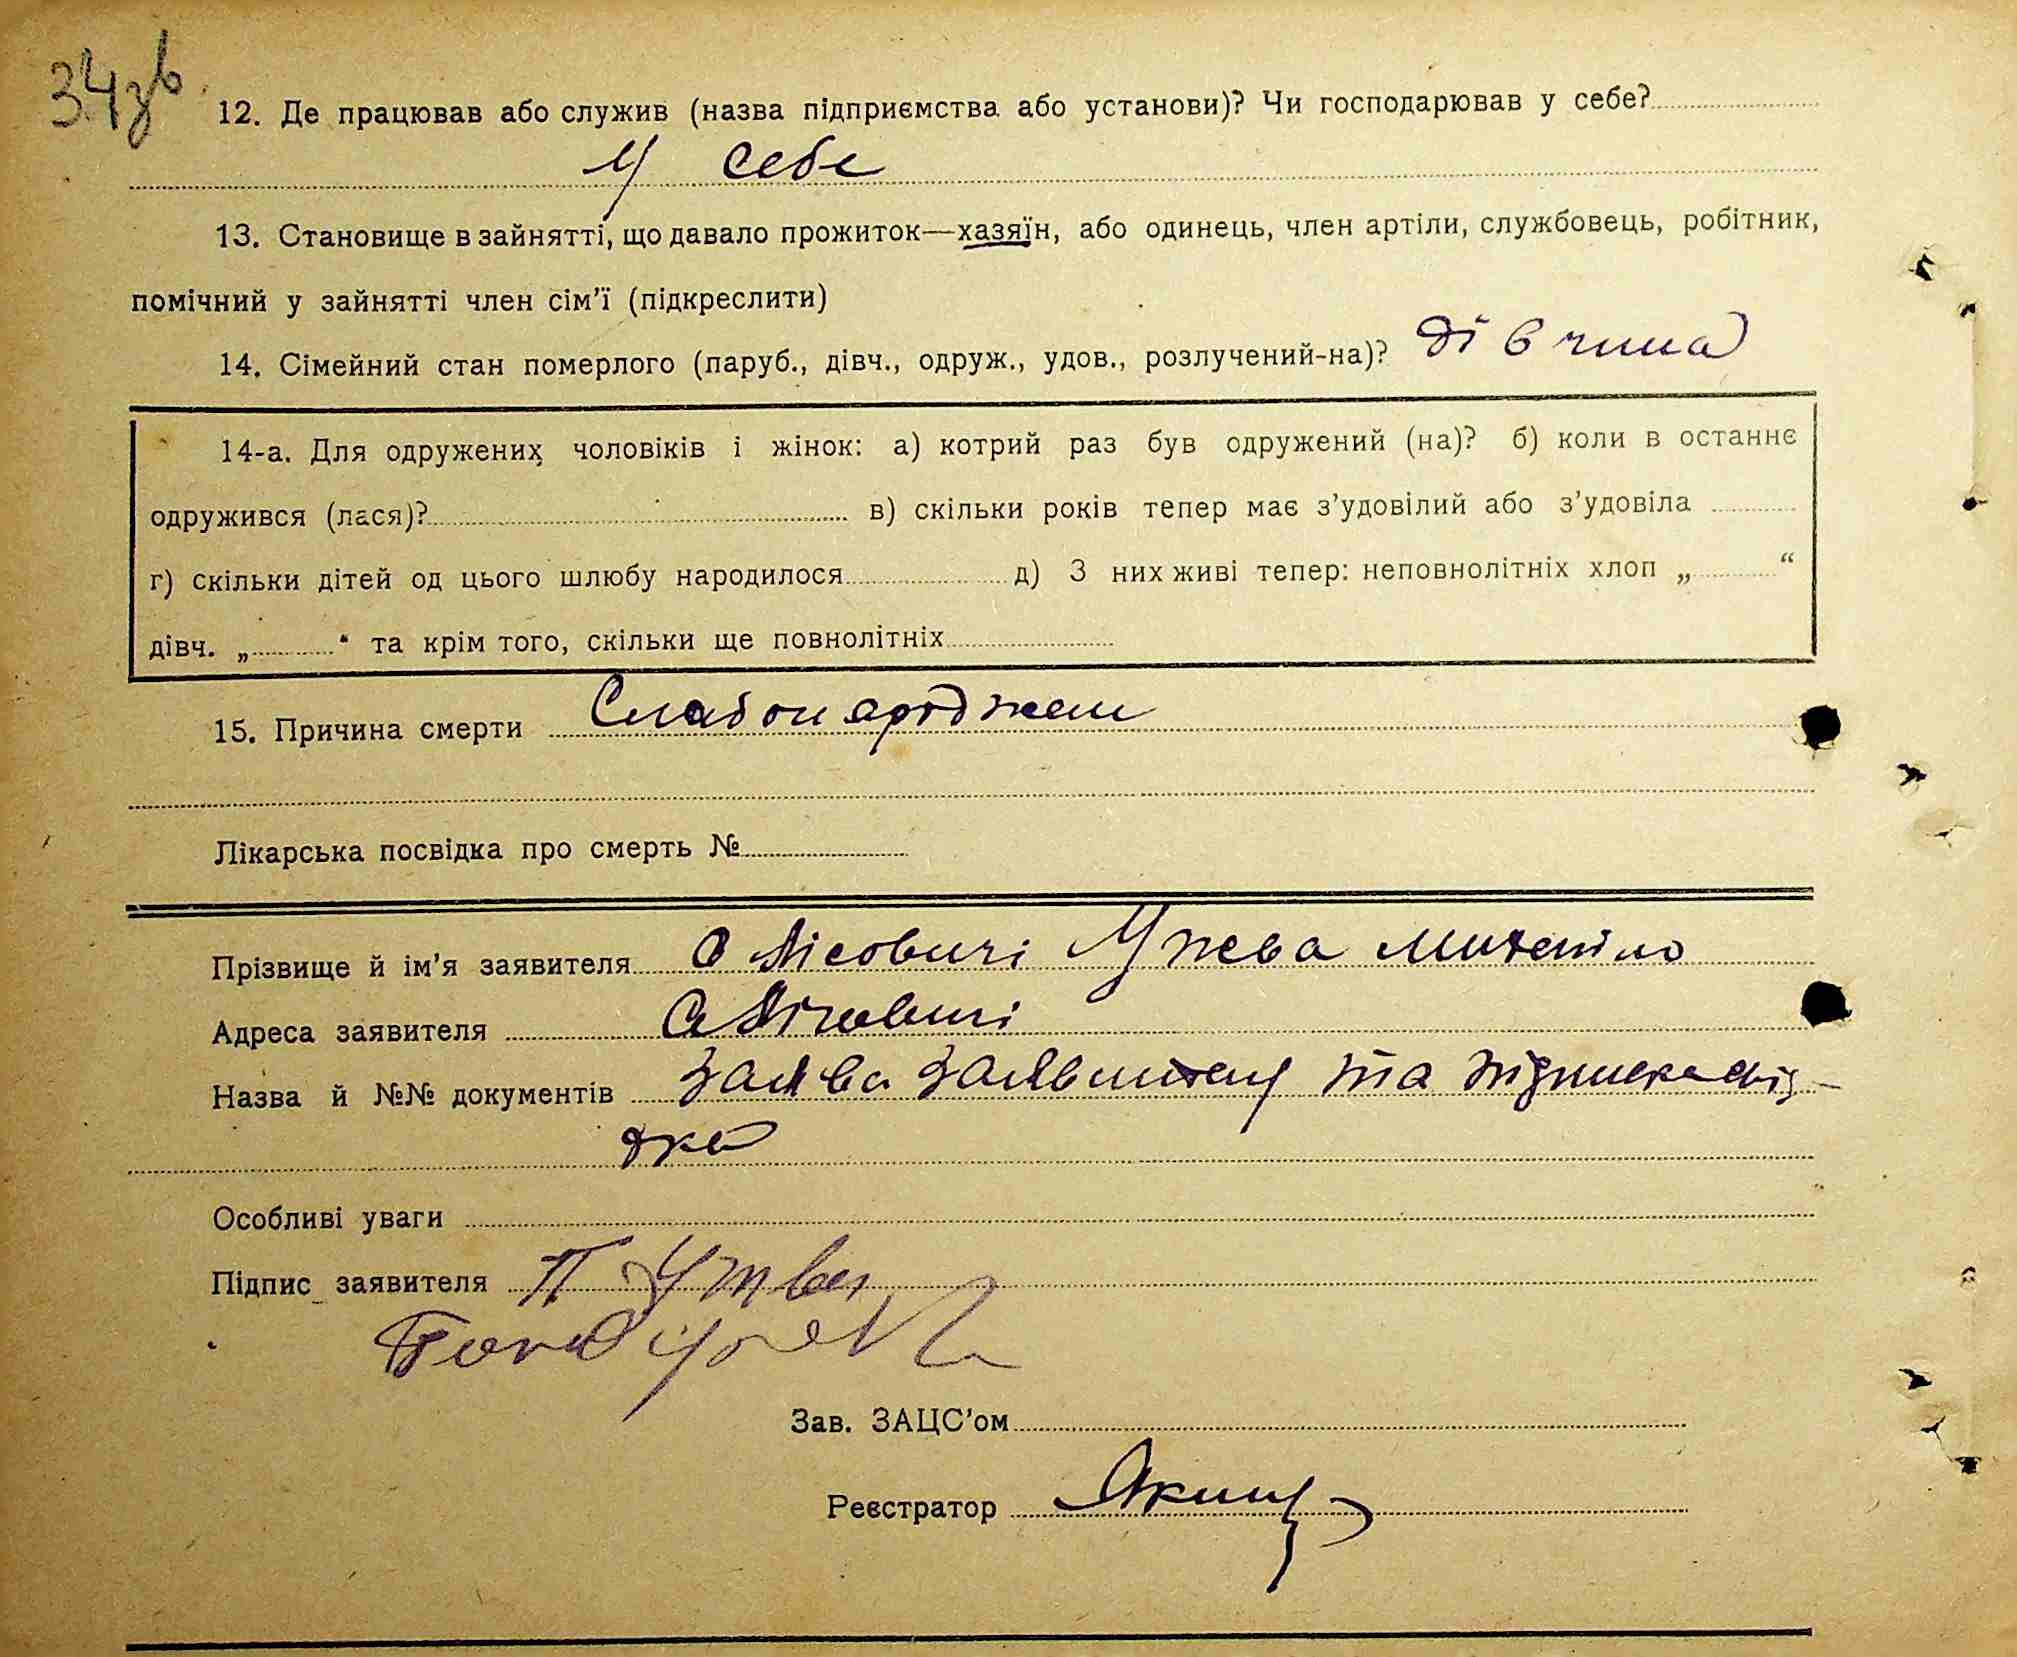 34зв.
12. Де працював або служив (назва підприємства або установи)? Чи господарював у себе?
У себе
13. Становище в зайнятті, що давало прожиток—хазяїн, або одинець, член артіли, службовець, робітник,
помічний у зайнятті член сім’ї (підкреслити)
14. Сімейний стан померлого (паруб., дівч., одруж., удов., розлучений-на)? дівчина
14-а. Для одружених чоловіків і жінок: а) котрий раз був одружений (на)? б) коли в останнє
одружився (лася)? в) скільки років тепер має з’удовілий або з’удовіла
г) скільки дітей од цього шлюбу народилося д) З них живі тепер: неповнолітніх хлоп „ “
дівч. „ “ та крім того, скільки ще повнолітніх
15. Причина смерти Слабонароджен
Лікарська посвідка про смерть №
Прізвище й ім’я заявителя с Лісовичі
Адреса заявителя с Лісовичі
Назва й №№ документів заява заявителя та
Особливі уваги
Підпис заявителя
Зав. ЗАЦС’ом
Реєстратор